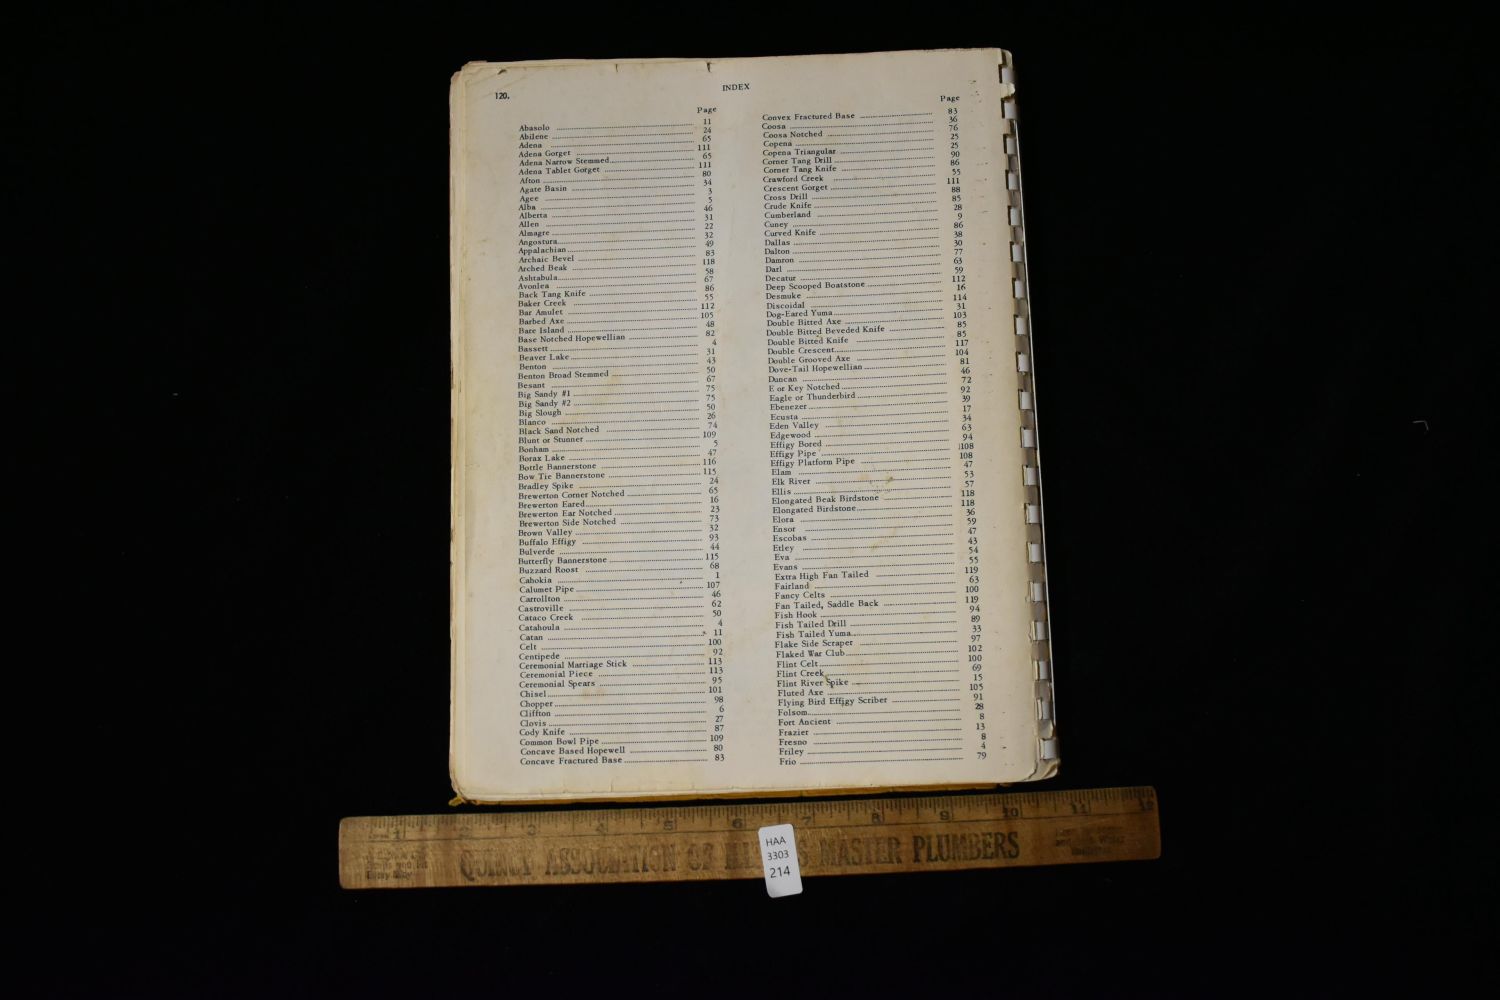 120.
INDEX
Page
Abasolo 11
Abilene 24
Adena 65
Adena Gorget 111
Adena Narrow Stemmed 65
Adena Tablet Gorget 111
Afton 80
Agate Basin 34
Agee 3
Alba 5
Alberta 46
Allen 31
Almagre 22
Angostura 32
Appalachian 49
Archaic Bevel 83
Arched Beak 118
Ashtabula 58
Avonlea 67
Back Tang Knife 86
Baker Creek 55
Bar Amulet 112
Barbed Axe 105
Bare Island 48
Base Notched Hopewellian 82
Bassett 4
Beaver Lake 31
Benton 43
Benton Broad Stemmed 50
Besant 67
Big Sandy #1 75
Big Sandy #2 75
Big Slough 50
Blanco 26
Black Sand Notched 74
Blunt or Stunner 109
Bonham 5
Borax Lake 47
Bottle Bannerstone 116
Bow Tie Bannerstone 115
Bradley Spike 24
Brewerton Corner Notched 65
Brewerton Eared 16
Brewerton Ear Notched 23
Brewerton Side Notched 73
Brown Valley 32
Buffalo Effigy 93
Bulverde 44
Butterfly Bannerstone 115
Buzzard Roost 68
Cahokia 1
Calumet Pipe 107
Carrollton 46
Castroville 62
Cataco Creek 50
Catahoula 4
Catan 11
Celt 100
Centipede 92
Ceremonial Marriage Stick 113
Ceremonial Piece 113
Ceremonial Spears 95
Chisel 101
Chopper 98
Cliffton 6
Clovis 27
Cody Knife 87
Common Bowl Pipe 109
Concave Based Hopewell 80
Concave Fractured Base 83
Page
Convex Fractured Base 83
Coosa 36
Coosa Notched 76
Copena 25
Copena Triangular 25
Corner Tang Drill 90
Corner Tang Knife 86
Crawford Creek 55
Crescent Gorget 111
Cross Drill 88
Crude Knife 85
Cumberland 28
Cuney 9
Curved Knife 86
Dallas 38
Dalton 30
Damron 77
Darl 63
Decatur 59
Deep Scooped Boatstone 112
Desmuke 16
Discoidal 114
Dog-Eared Yuma 31
Double Bitted Axe 103
Double Bitted Beveded Knife 85
Double Bitted Knife 85
Double Crescent 117
Double Grooved Axe 104
Dove-Tail Hopewellian 81
Duncan 46
E or Key Notched 72
Eagle or Thunderbird 92
Ebenezer 39
Ecusta 17
Eden Valley 34
Edgewood 63
Effigy Bored 94
Effigy Pipe 108
Effigy Platform Pipe 108
Elam 47
Elk River 53
Ellis 57
Elongated Beak Birdstone 118
Elongated Birdstone 118
Elora 36
Ensor 59
Escobas 47
Etley 43
Eva 54
Evans 55
Extra High Fan Tailed 119
Fairland 63
Fancy Celts 100
Fan Tailed, Saddle Back 119
Fish Hook 94
Fish Tailed Drill 89
Fish Tailed Yuma 33
Flake Side Scraper 97
Flaked War Club 102
Flint Celt 100
Flint Creek 69
Flint River Spike 15
Fluted Axe 105
Flying Bird Effigy Scriber 91
Folsom 28
Fort Ancient 8
Frazier 13
Fresno 8
Friley 4
Frio 79
1 2 3 4 5 6 7 8 9 10 11 12
QUINCY ASSOCIATION OF MASTER PLUMBERS
HAA
3303
214